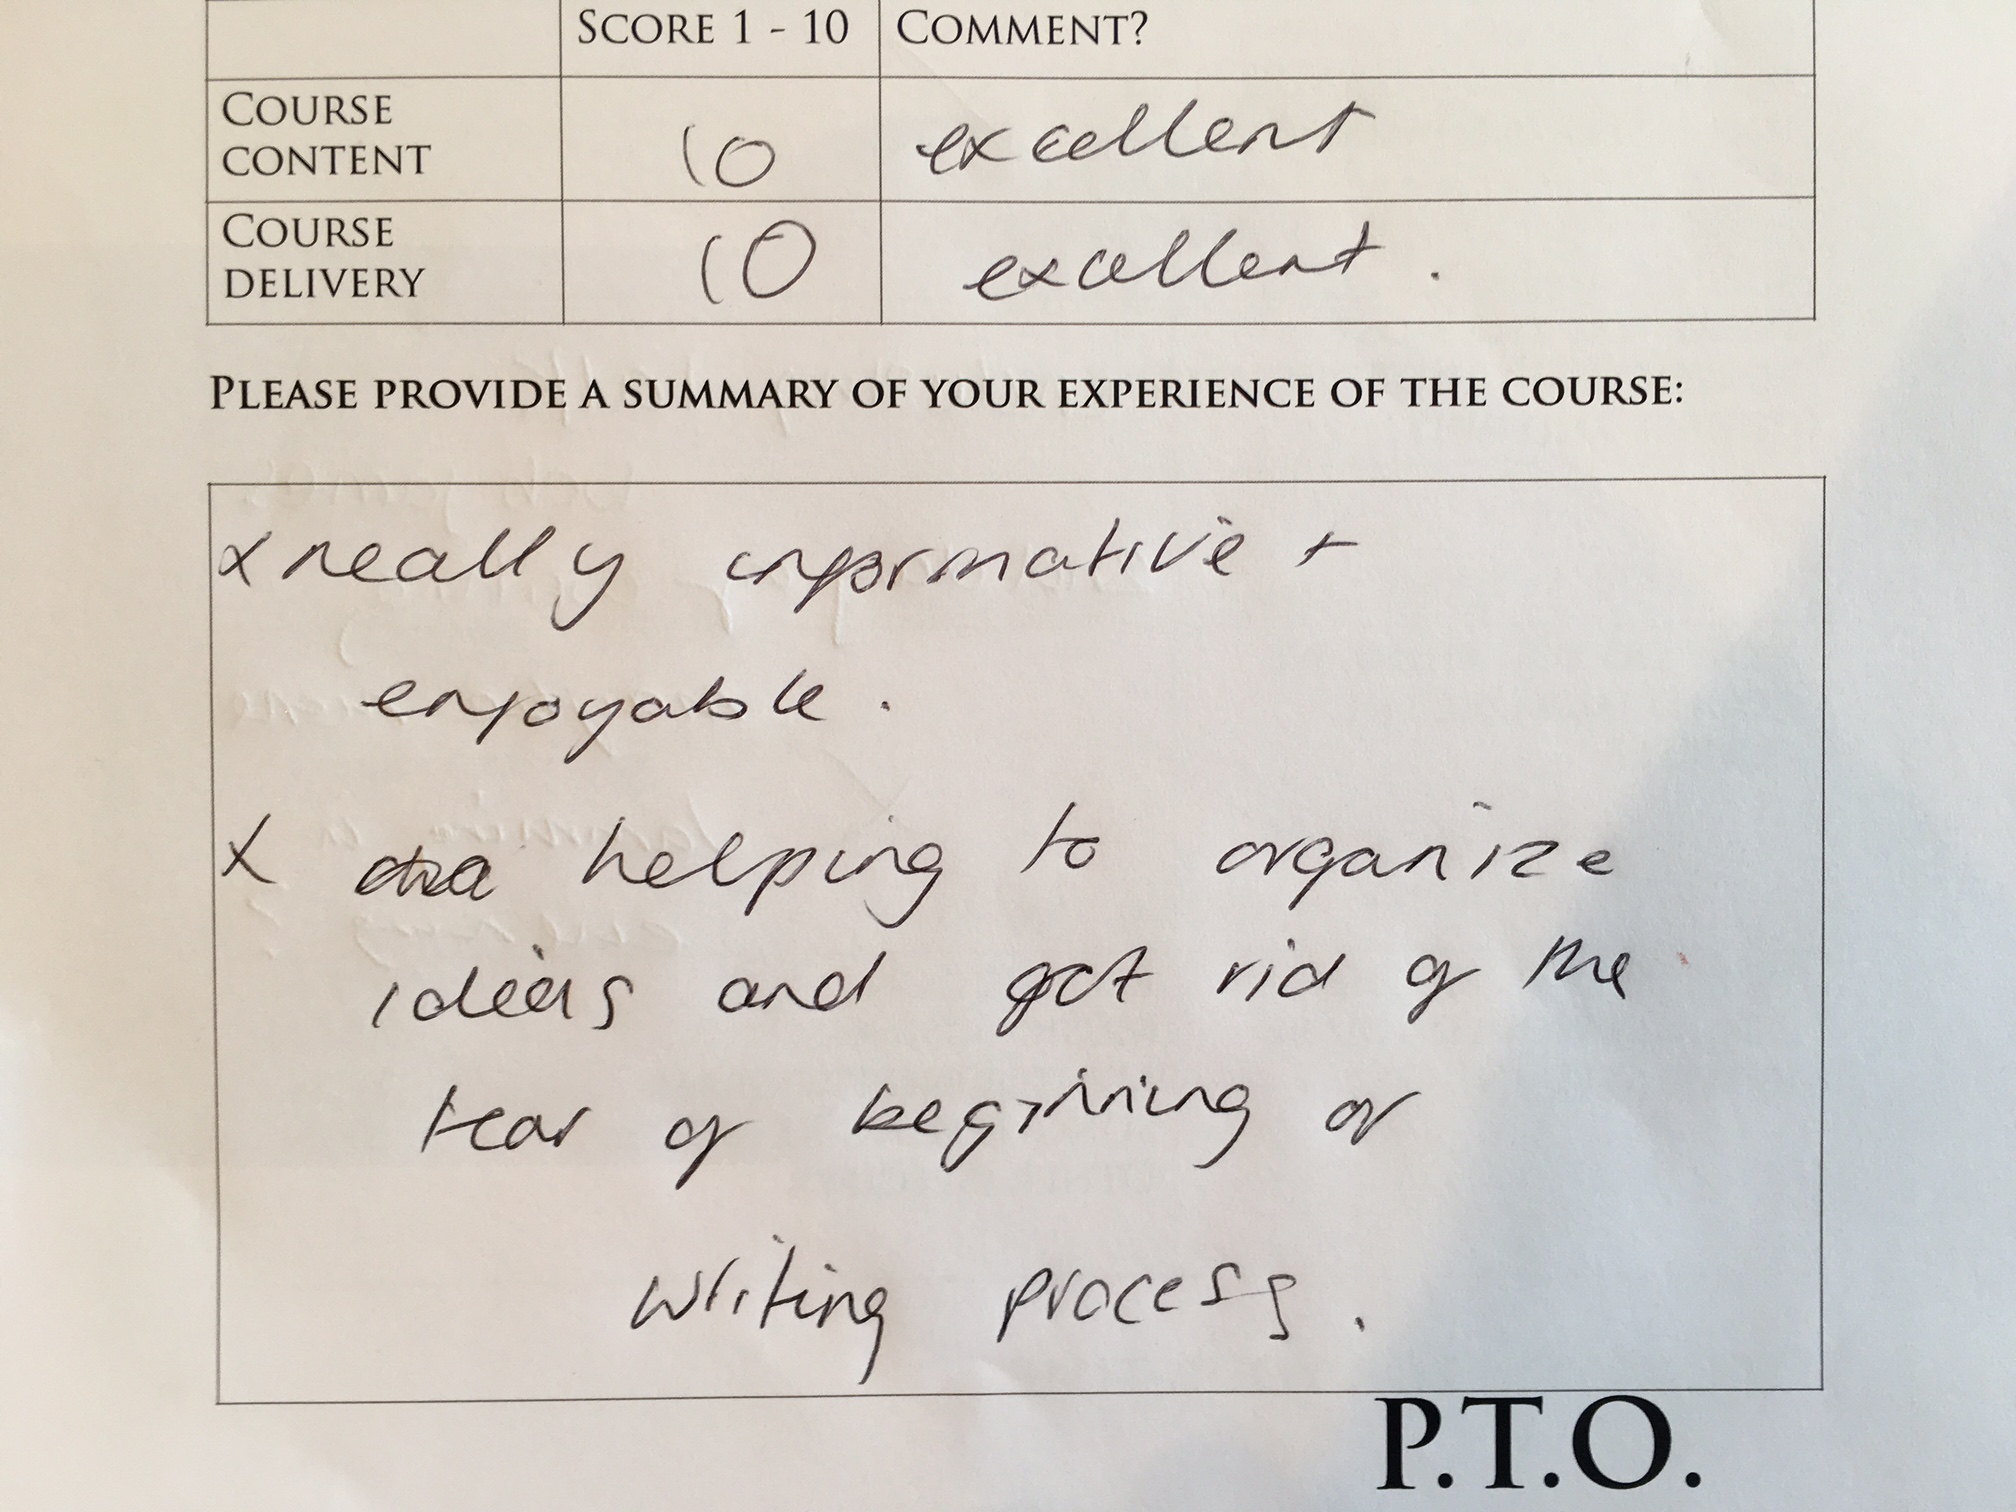 SCORE 1 - 10 COMMENT?
COURSE CONTENT 10 excellent
COURSE DELIVERY 10 excellent.
PLEASE PROVIDE A SUMMARY OF YOUR EXPERIENCE OF THE COURSE:
x really informative +
enjoyable.
x helping to organize
ideas and got rid of the
fear of beginning or
writing process.
P.T.O.